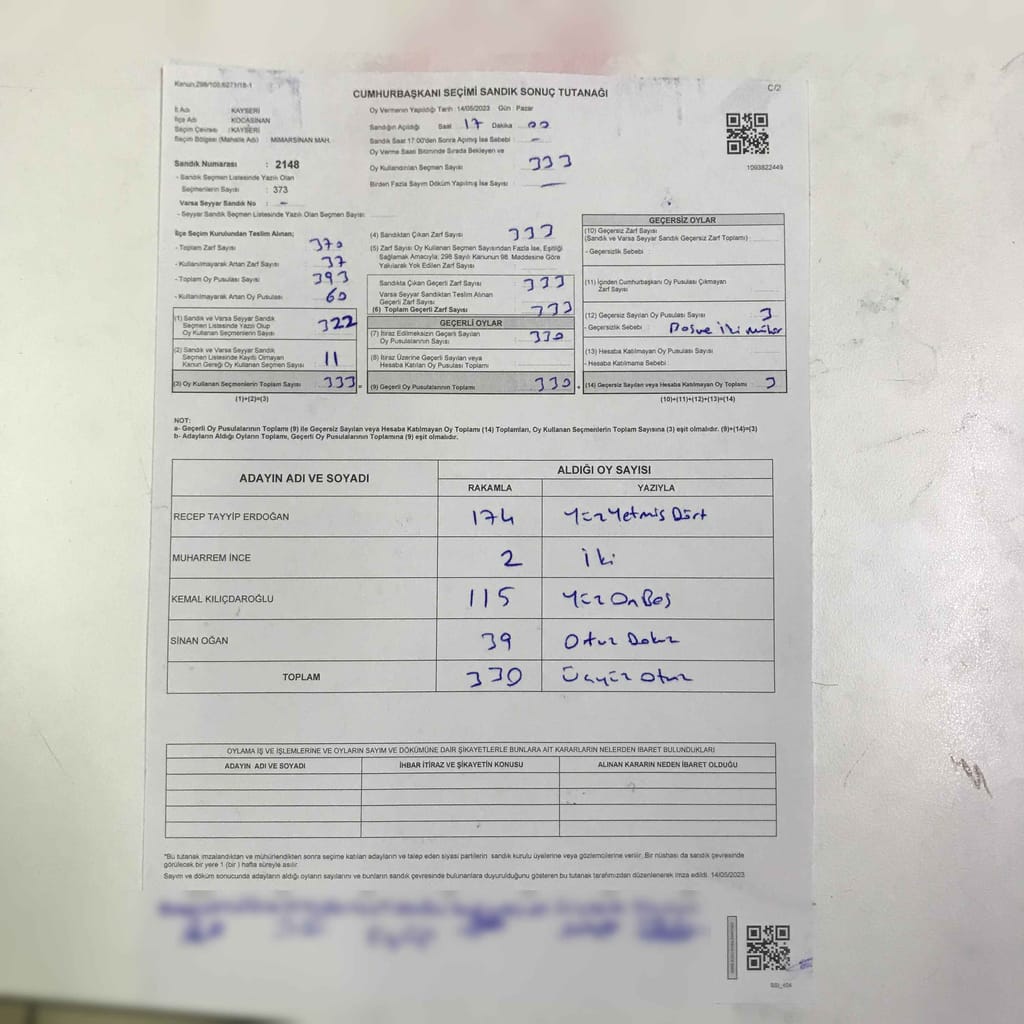 Kanun:298/105,6271/18-1
CUMHURBAŞKANI SEÇİMİ SANDIK SONUÇ TUTANAĞI
C/2
İl Adı : KAYSERİ
İlçe Adı : KOCASİNAN
Seçim Çevresi : KAYSERİ
Seçim Bölgesi (Mahalle Adı) : MİMARSİNAN MAH.
Oy Vermenin Yapıldığı Tarih :14/05/2023 Gün : Pazar
Sandığın Açıldığı Saat 17 Dakika 00
Sandık Saat 17:00'den Sonra Açılmış İse Sebebi : -
Oy Verme Saati Bitiminde Sırada Bekleyen ve
Oy Kullandırılan Seçmen Sayısı 333
Birden Fazla Sayım Döküm Yapılmış İse Sayısı : -
1093822449
Sandık Numarası : 2148
- Sandık Seçmen Listesinde Yazılı Olan
Seçmenlerin Sayısı : 373
Varsa Seyyar Sandık No : -
- Seyyar Sandık Seçmen Listesinde Yazılı Olan Seçmen Sayısı:
İlçe Seçim Kurulundan Teslim Alınan;
- Toplam Zarf Sayısı 370
- Kullanılmayarak Artan Zarf Sayısı 37
- Toplam Oy Pusulası Sayısı 393
- Kullanılmayarak Artan Oy Pusulası 60
(1) Sandık ve Varsa Seyyar Sandık
Seçmen Listesinde Yazılı Olup
Oy Kullanan Seçmenlerin Sayısı 322
(2) Sandık ve Varsa Seyyar Sandık
Seçmen Listesinde Kayıtlı Olmayan
Kanun Gereği Oy Kullanan Seçmen Sayısı 11
(3) Oy Kullanan Seçmenlerin Toplam Sayısı 333
(1)+(2)=(3)
(4) Sandıktan Çıkan Zarf Sayısı 333
(5) Zarf Sayısı Oy Kullanan Seçmen Sayısından Fazla İse, Eşitliği
Sağlamak Amacıyla; 298 Sayılı Kanunun 98. Maddesine Göre
Yakılarak Yok Edilen Zarf Sayısı
Sandıkta Çıkan Geçerli Zarf Sayısı 333
Varsa Seyyar Sandıktan Teslim Alınan
Geçerli Zarf Sayısı
(6) Toplam Geçerli Zarf Sayısı 333
GEÇERLİ OYLAR
(7) İtiraz Edilmeksizin Geçerli Sayılan
Oy Pusulalarının Sayısı 330
(8) İtiraz Üzerine Geçerli Sayılan veya
Hesaba Katılan Oy Pusulası Toplamı
= (9) Geçerli Oy Pusulalarının Toplamı 330 +
GEÇERSİZ OYLAR
(10) Geçersiz Zarf Sayısı
(Sandık ve Varsa Seyyar Sandık Geçersiz Zarf Toplamı) :
- Geçersizlik Sebebi :
(11) İçinden Cumhurbaşkanı Oy Pusulası Çıkmayan
Zarf Sayısı
(12) Geçersiz Sayılan Oy Pusulası Sayısı 3
- Geçersizlik Sebebi : İki mühür
(13) Hesaba Katılmayan Oy Pusulası Sayısı
- Hesaba Katılmama Sebebi :
(14) Geçersiz Sayılan veya Hesaba Katılmayan Oy Toplamı 3
(10)+(11)+(12)+(13)=(14)
NOT:
a- Geçerli Oy Pusulalarının Toplamı (9) ile Geçersiz Sayılan veya Hesaba Katılmayan Oy Toplamı (14) Toplamları, Oy Kullanan Seçmenlerin Toplam Sayısına (3) eşit olmalıdır. (9)+(14)=(3)
b- Adayların Aldığı Oyların Toplamı, Geçerli Oy Pusulalarının Toplamına (9) eşit olmalıdır.
ADAYIN ADI VE SOYADI ALDIĞI OY SAYISI
RAKAMLA YAZIYLA
RECEP TAYYİP ERDOĞAN 174 Yüz Yetmiş Dört
MUHARREM İNCE 2 İki
KEMAL KILIÇDAROĞLU 115 Yüz On Beş
SİNAN OĞAN 39 Otuz Dokuz
TOPLAM 330 Üçyüz Otuz
OYLAMA İŞ VE İŞLEMLERİNE VE OYLARIN SAYIM VE DÖKÜMÜNE DAİR ŞİKAYETLERLE BUNLARA AİT KARARLARIN NELERDEN İBARET BULUNDUKLARI
ADAYIN ADI VE SOYADI İHBAR İTİRAZ VE ŞİKAYETİN KONUSU ALINAN KARARIN NEDEN İBARET OLDUĞU
*Bu tutanak imzalandıktan ve mühürlendikten sonra seçime katılan adayların ve talep eden siyasi partilerin sandık kurulu üyelerine veya gözlemcilerine verilir. Bir nüshası da sandık çevresinde
görülecek bir yere 1 (bir ) hafta süreyle asılır.
Sayım ve döküm sonucunda adayların aldığı oyların sayılarını ve bunların sandık çevresinde bulunanlara duyurulduğunu gösteren bu tutanak tarafımızdan düzenlenerek imza edildi. 14/05/2023